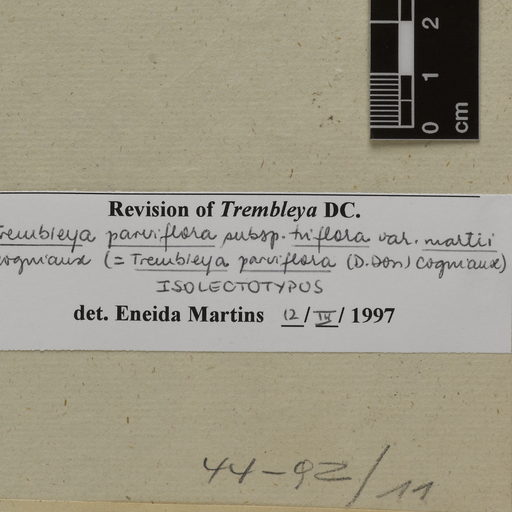 2
1
0
cm
Revision of Trembleya DC.
Trembleya parviflora subsp. triflora var. martii
Cogniaux (= Trembleya parviflora (D.Don) Cogniaux)
ISOLECTOTYPUS
det. Eneida Martins 12/IV/1997
44-92/11